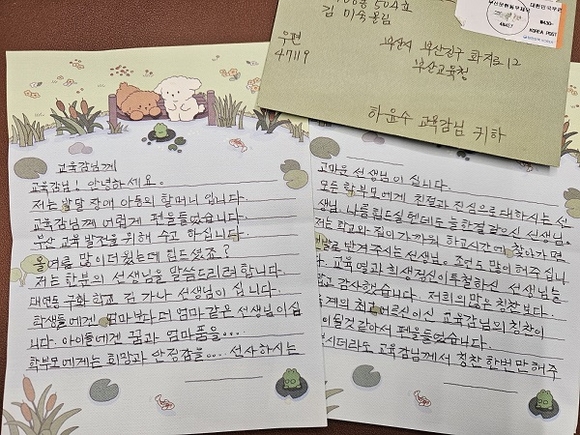 504호
김 미숙올림
대한민국우편
KOREA POST
우편
47119
부산시 부산진구 화지로12
부산교육청
하윤수 교육감님 귀하
교육감님께
교육감님! 안녕하세요.
저는 발달 장애 아동의 할머니 입니다.
교육감님께 어렵게 펜을들었습니다.
부산 교육 발전을 위해 수고 하십니다.
올여름 많이 더웠는데 힘드셨죠?
저는 한분의 선생님을 말씀드리려 합니다.
대연동 구화학교 김 가나 선생님이 십니다.
학생들에겐 엄마보다 더 엄마 같은 선생님이십
니다. 아이들에겐 꿈과 엄마품을...
학부모에게는 희망과 안정감을... 선사하시는
고마운 선생님이 십니다.
모든 학부모에게 친절과 진심으로 대하시는 선
생님. 나름힘드실 텐데도 늘한결같으신 선생님.
저는 학교와 집이 가까워 하교시간에 찾아가면
반겨주시는 선생님. 조언도 많이 해주십
교육열과 희생정신이투철하신 선생님을
감사했습니다. 저희의 많은 칭찬보다.
계의 최고어르신이신 교육감님의 칭찬이
될것 같아서 펜을들었습니다.
시더라도 교육감님께서 칭찬 한번만 해주